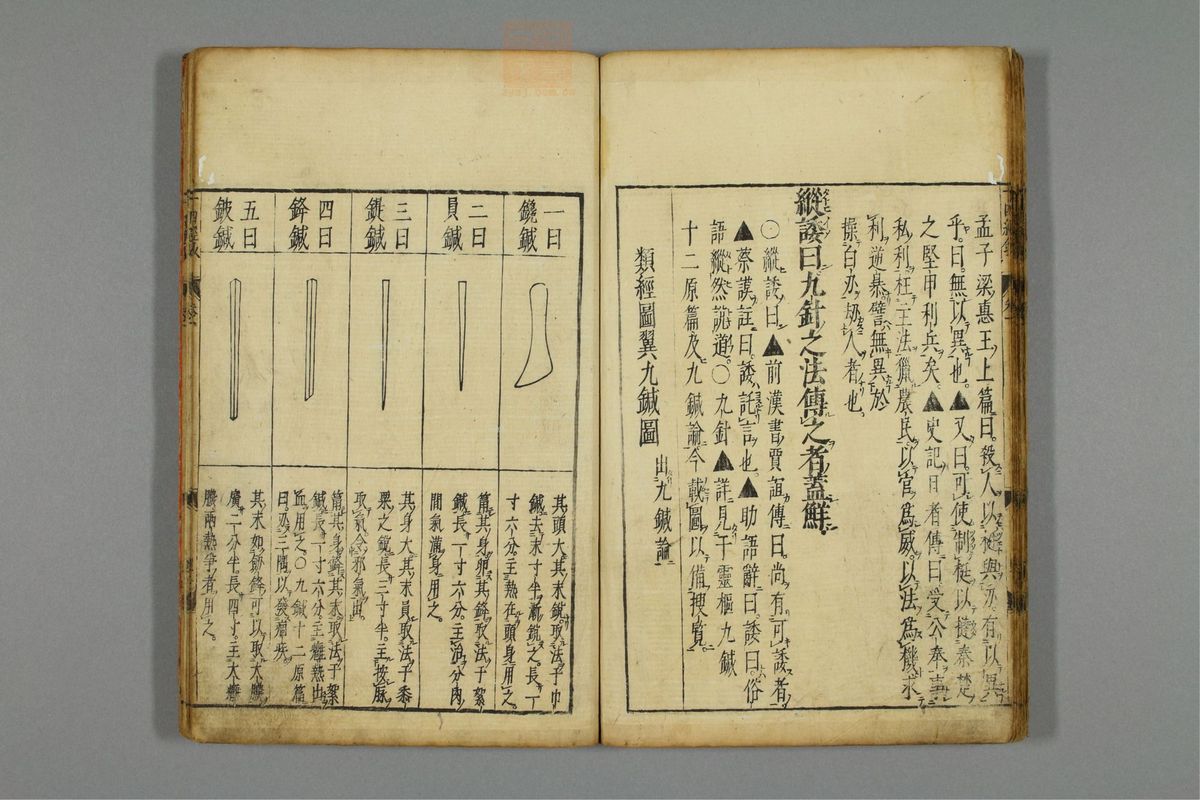 孟子梁惠王上篇曰。殺人以梃與刃有以異
乎。曰。無以異也。▲又曰。可使制梃以撻秦楚
之堅甲利兵矣。▲史記日者傳曰受公奉事
私利枉主法獵農民。以官爲威以法爲機求
利逆暴譬無異於
操白刃刼人者也。
縱諉曰九針之法傳之者蓋鮮
〇縱諉曰▲前漢書賈誼傳曰。尚有可諉者
▲蔡謨註曰。諉託言也。▲助語辭曰。諉曰。俗
語縱然說道。〇九針▲詳見于靈樞九鍼
十二原篇及九鍼論今載圖以備搜覽
類經圖翼九鍼圖 出九鍼論
一曰
鑱鍼
其頭大其末銳取法于巾
鍼去末寸半漸銳之長一
寸六分主熱在頭身用之。
二曰
員鍼
筩其身卵其鋒取法于絮
鍼長一寸六分主治分肉
間氣滿身用之。
三曰
鍉鍼
其身大其末員取法于黍
粟之銳長三寸半。主按脉
取氣令邪氣出。
四曰
鋒鍼
筩其身鋒其末。取法于絮
鍼長一寸六分主癰熱出
血用之〇九鍼十二原篇
曰刃三隅以發痼疾
五曰
鈹鍼
其末如劔鋒可以取大膿
廣二分半長四寸主大癰
膿兩熱爭者用之。